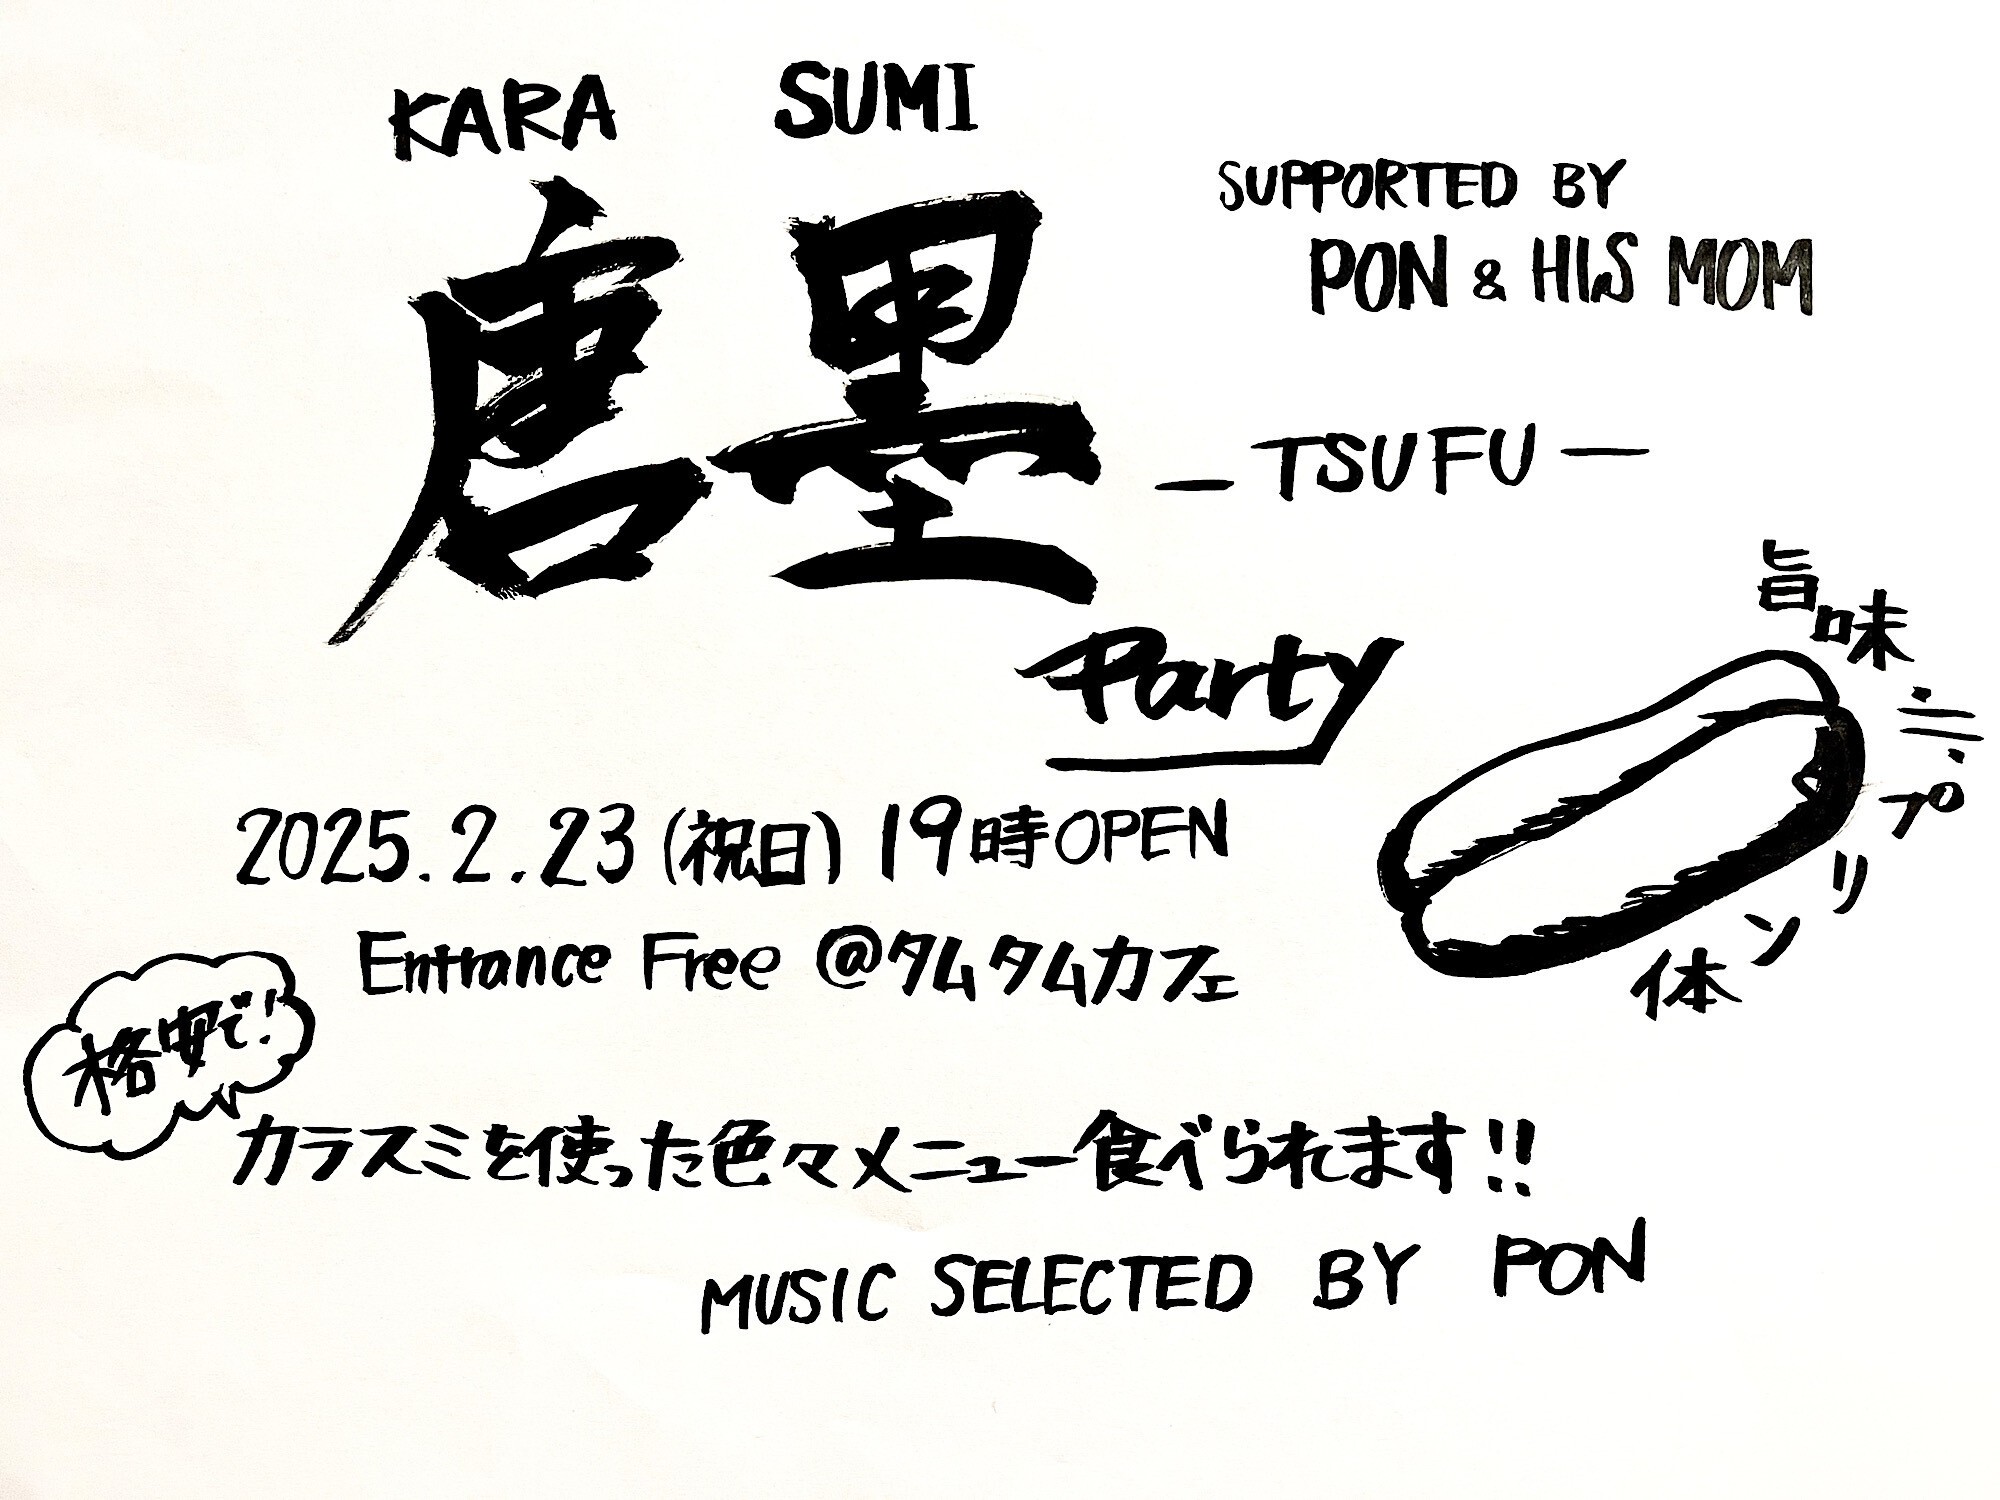 KARA SUMI
唐墨
SUPPORTED BY
PON & HIS MOM
— TSUFU —
Party
旨味≒プリン体
2025.2.23(祝日) 19時OPEN
Entrance Free @タムタムカフェ
格安で!
カラスミを使った色々メニュー食べられます!!
MUSIC SELECTED BY PON